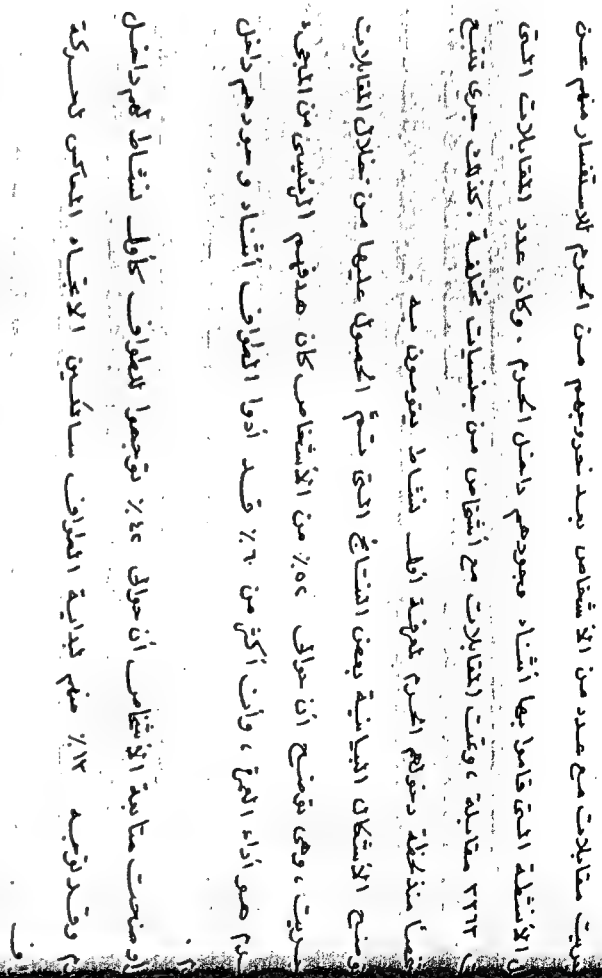 مقابلات مع عدد من الأشخاص بعد خروجهم من الحرم للاستفسار منهم عن
الأنشطة التي قاموا بها أثناء وجودهم داخل الحرم . وكان عدد المقابلات التي
٢٢٦٣ مقابلة ، وتمت المقابلات مع أشخاص من جنسيات مختلفة . كذلك جرى تتبع
منذ لحظة دخولهم الحرم لمعرفة أول نشاط يقومون به
الأشكال البيانية بعض النتائج التي تم الحصول عليها من خلال المقابلات
، وهي توضح أن حوالي ٥٢٪ من الأشخاص كان هدفهم الرئيسي من المجيء
هو أداء العمرة ، وأن أكثر من ٦٠٪ قد أدوا الطواف أثناء وجودهم داخل
متابعة الأشخاص أن حوالي ٤٢٪ توجهوا للطواف كأول نشاط لهم داخل
وقد توجه ١٣٪ منهم لبداية الطواف سالكين الاتجاه المعاكس لحركة